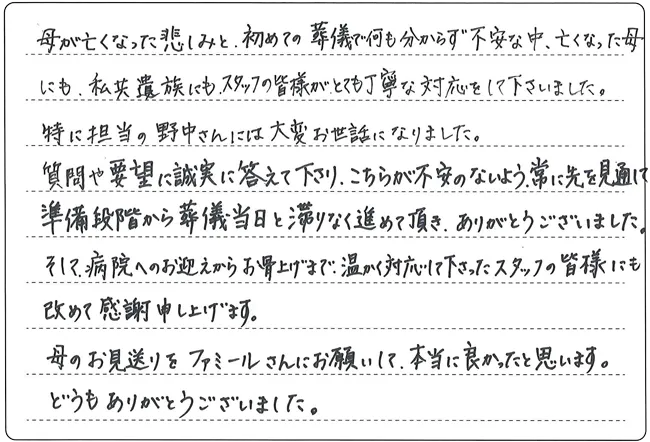 母が亡くなった悲しみと、初めての葬儀で何も分からず不安な中、亡くなった母
にも、私共遺族にも、スタッフの皆様がとても丁寧な対応をして下さいました。
特に担当の野中さんには大変お世話になりました。
質問や要望に誠実に答えて下り、こちらが不安のないよう、常に先を見通して
準備段階から葬儀当日と滞りなく進めて頂き、ありがとうございました。
そして、病院へのお迎えからお骨上げまで、温かく対応して下さったスタッフの皆様にも
改めて感謝申し上げます。
母のお見送りをファミールさんにお願いして、本当に良かったと思います。
どうもありがとうございました。